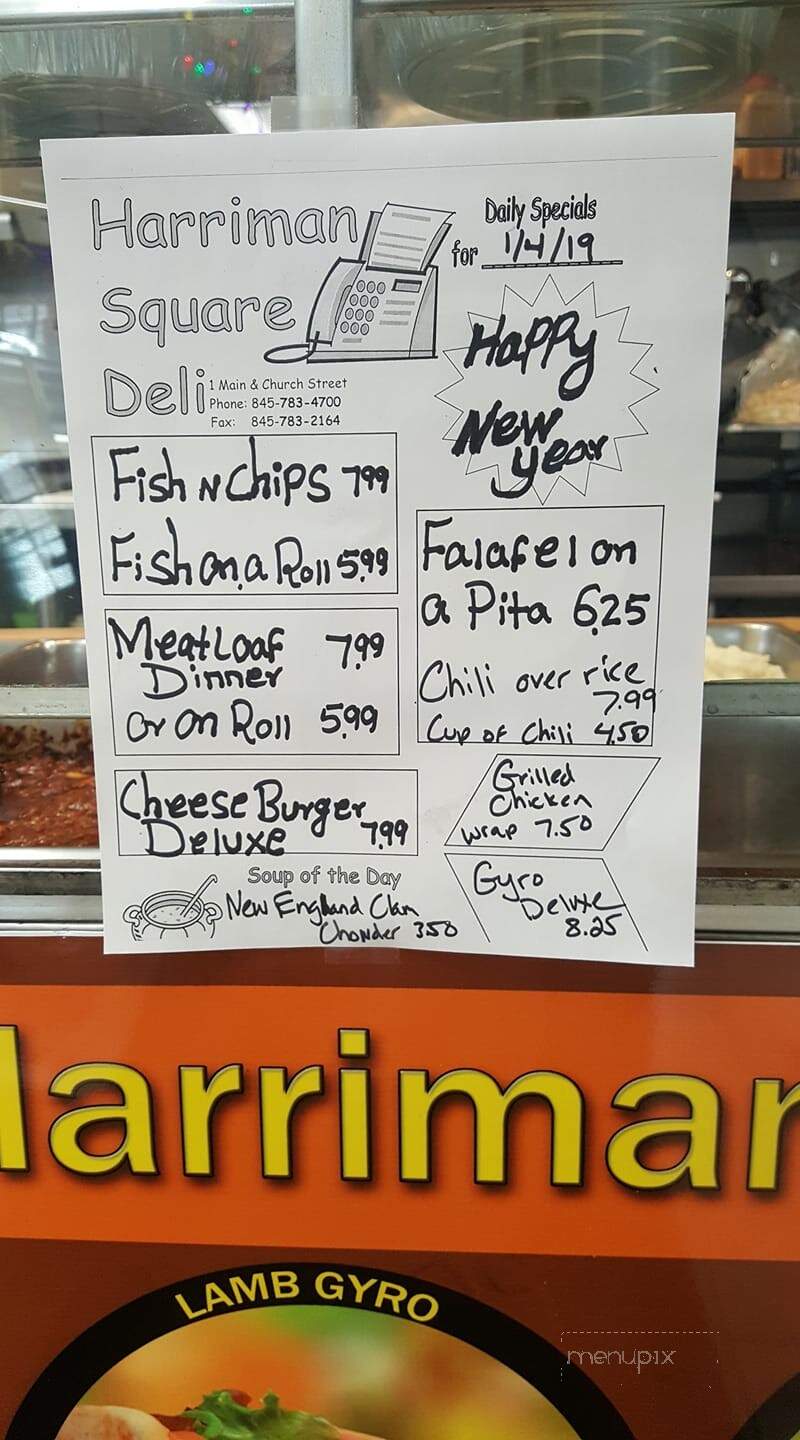 Harriman
Square
Deli
1 Main & Church Street
Phone: 845-783-4700
Fax: 845-783-2164
Daily Specials
for 1/4/19
Happy
New
year
Fish N Chips 7.99
Fish on a Roll 5.99
Meat Loaf 7.99
Dinner
or on Roll 5.99
Cheese Burger
Deluxe 7.99
Soup of the Day
New England Clam
Chowder 3.50
Falafel on
a Pita 6.25
Chili over rice
7.99
Cup of Chili 4.50
Grilled
Chicken
wrap 7.50
Gyro
Deluxe
8.25
Harriman
LAMB GYRO
menupix